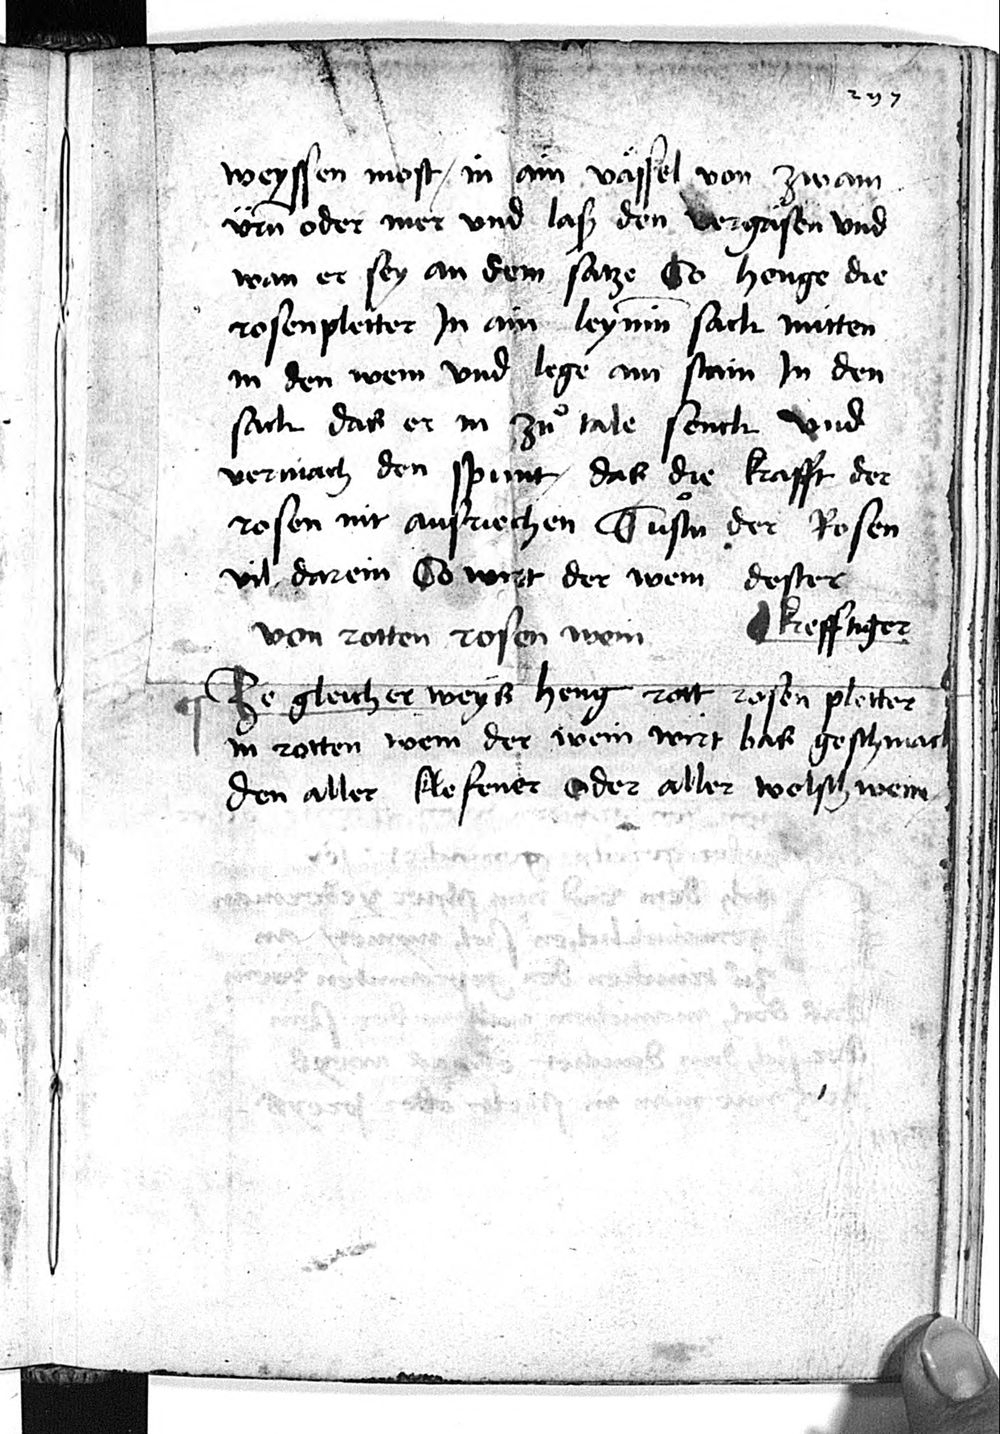 297
weyssen most / in ain väſſel von zwain
ürn oder mer vnd laſz den vergäſen vnd
wan er ſey an dem ſatze So henge die
roſenpletter In ain leynnin ſack mitten
in den wein vnd lege ain ſtain In den
ſack das er in zuͦ tale ſenck vnd
vermach den ſpunt / das die krafft der
roſen nit auſriechen Tuͦſtu der Roſen
vil darein So wirt der wein deſter
krefftiger
von rotten roſen wein
Ze gleicher weyß heng rott roſen pletter
in rotten wein der wein wirt bas geſchmack
den aller klefener oder aller welſch wein